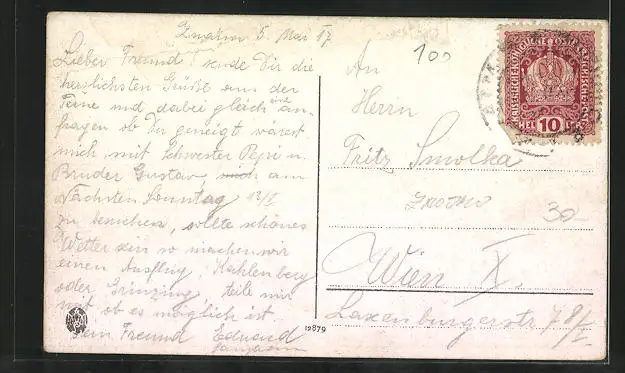 Znaim 5. Mai 17
Lieber Freund! sende Dir die
herzlichsten Grüße aus der
Ferne und dabei gleich und an-
fragen ob Du geneigt wärest
mich mit Schwester Pepi u.
Bruder Gustav am
Nächsten Sonntag 13/5
zu besuchen, sollte schönes
Wetter sein so machen wir
einen Ausflug, Kahlenberg
oder Grinzing, teile mir
mit ob es möglich ist
Dein Freund Eduard
100
An
Herrn
Fritz Smolka
30-
Wien X.
Laxenburgerstr 78/I
KAISERLICHE KÖNIGLICHE ÖSTERREICHISCHE POST
HELLER 10
12879